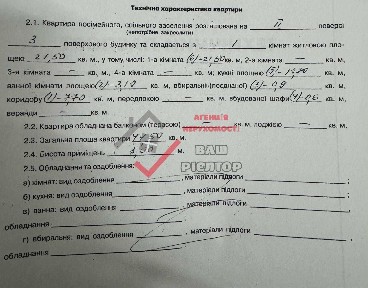 Технічна характеристика квартири
2.1. Квартира посімейного, спільного заселення розташована на II поверсі
(непотрібне закреслити)
3 поверхового будинку та складається з 1 кімнат житловою пло-
щею 21,50 кв. м., у тому числі: 1-а кімната (6)-21,50 кв. м, 2-а кімната — кв. м,
3-я кімната — кв. м, 4-а кімната — кв. м; кухні площею (5)- кв. м,
ванної кімнати площею (2) кв. м, вбиральні (поєднаної) (3)-0,9 кв. м,
коридору (1)-7,70 кв. м, передпокою — кв. м, вбудованої шафи (4) кв. м,
веранди — кв. м.
2.2. Квартира обладнана балконом (терасою) — кв. м, лоджією — кв. м.
2.3. Загальна площа квартири кв. м.
2.4. Висота приміщень м.
2.5. Обладнання та оздоблення:
а) кімнат: вид оздоблення , матеріали підлоги ;
б) кухня: вид оздоблення , матеріали підлоги ;
в) ванна: вид оздоблення , матеріали підлоги ,
обладнання ;
г) вбиральня: вид оздоблення , матеріали підлоги ,
обладнання
АГЕНЦІЯ
НЕРУХОМОСТІ
ВАШ
РІЄЛТОР